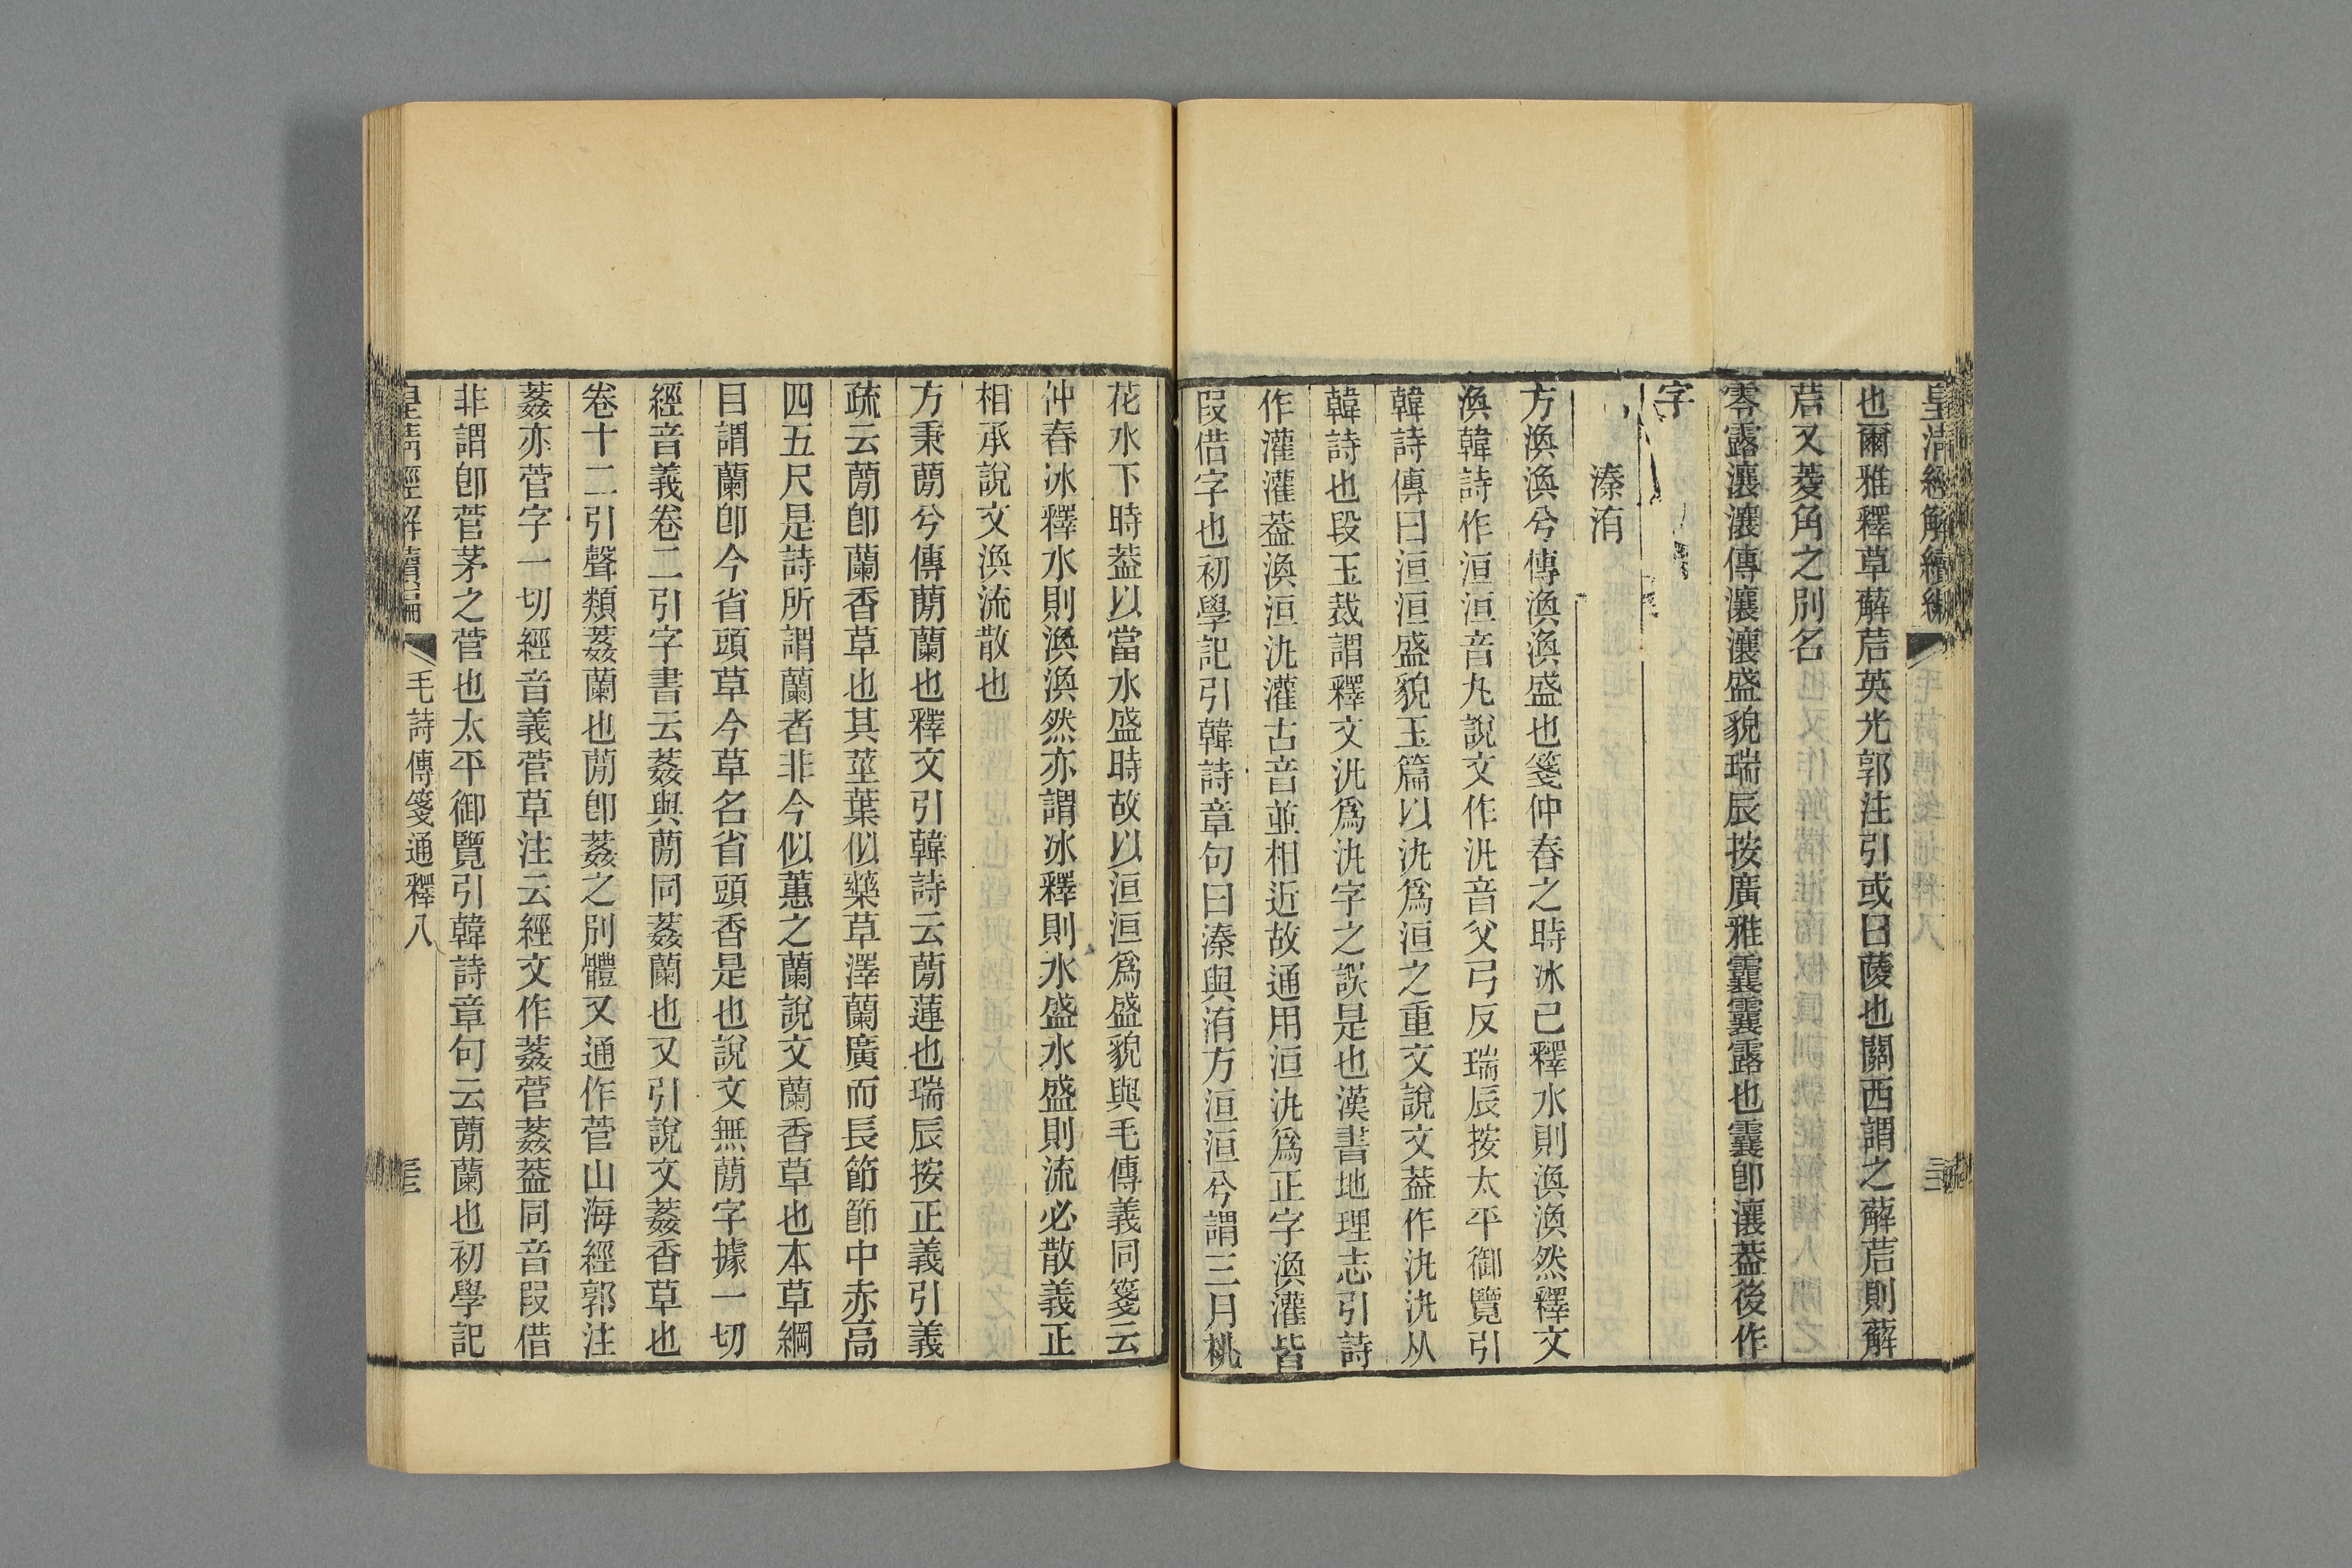 皇清經解續編
也爾雅釋草薢茩英光郭注引或曰蔆也關西謂之薢茩則薢
茩又蔆角之別名
零露瀼瀼傳瀼瀼盛貌瑞辰按廣雅䨲䨲露也䨲卽瀼葢後作
字
溱洧
方渙渙兮傳渙渙盛也箋仲春之時冰已釋水則渙渙然釋文
渙韓詩作洹洹音丸說文作汎音父弓反瑞辰按太平御覽引
韓詩傳曰洹洹盛貌玉篇以汍爲洹之重文說文葢作汍汍从
韓詩也段玉裁謂釋文汎爲汍字之誤是也漢書地理志引詩
作灌灌葢渙洹汍灌古音並相近故通用洹汍爲正字渙灌皆
叚借字也初學記引韓詩章句曰溱與洧方洹洹兮謂三月桃
花水下時葢以當水盛時故以洹洹爲盛貌與毛傳義同箋云
仲春冰釋水則渙渙然亦謂冰釋則水盛水盛則流必散義正
相承說文渙流散也
方秉蕑兮傳蕑蘭也釋文引韓詩云蕑蓮也瑞辰按正義引義
疏云蕑卽蘭香草也其莖葉似藥草澤蘭廣而長節節中赤高
四五尺是詩所謂蘭者非今似蕙之蘭說文蘭香草也本草綱
目謂蘭卽今省頭草今草名省頭香是也說文無蕑字據一切
經音義卷二引字書云葌與蕑同葌蘭也又引說文葌香草也
卷十二引聲類葌蘭也蕑卽葌之別體又通作菅山海經郭注
葌亦菅字一切經音義菅草注云經文作葌菅葌葢同音叚借
非謂卽菅茅之菅也太平御覽引韓詩章句云蕑蘭也初學記
皇清經解續編 毛詩傳箋通釋八